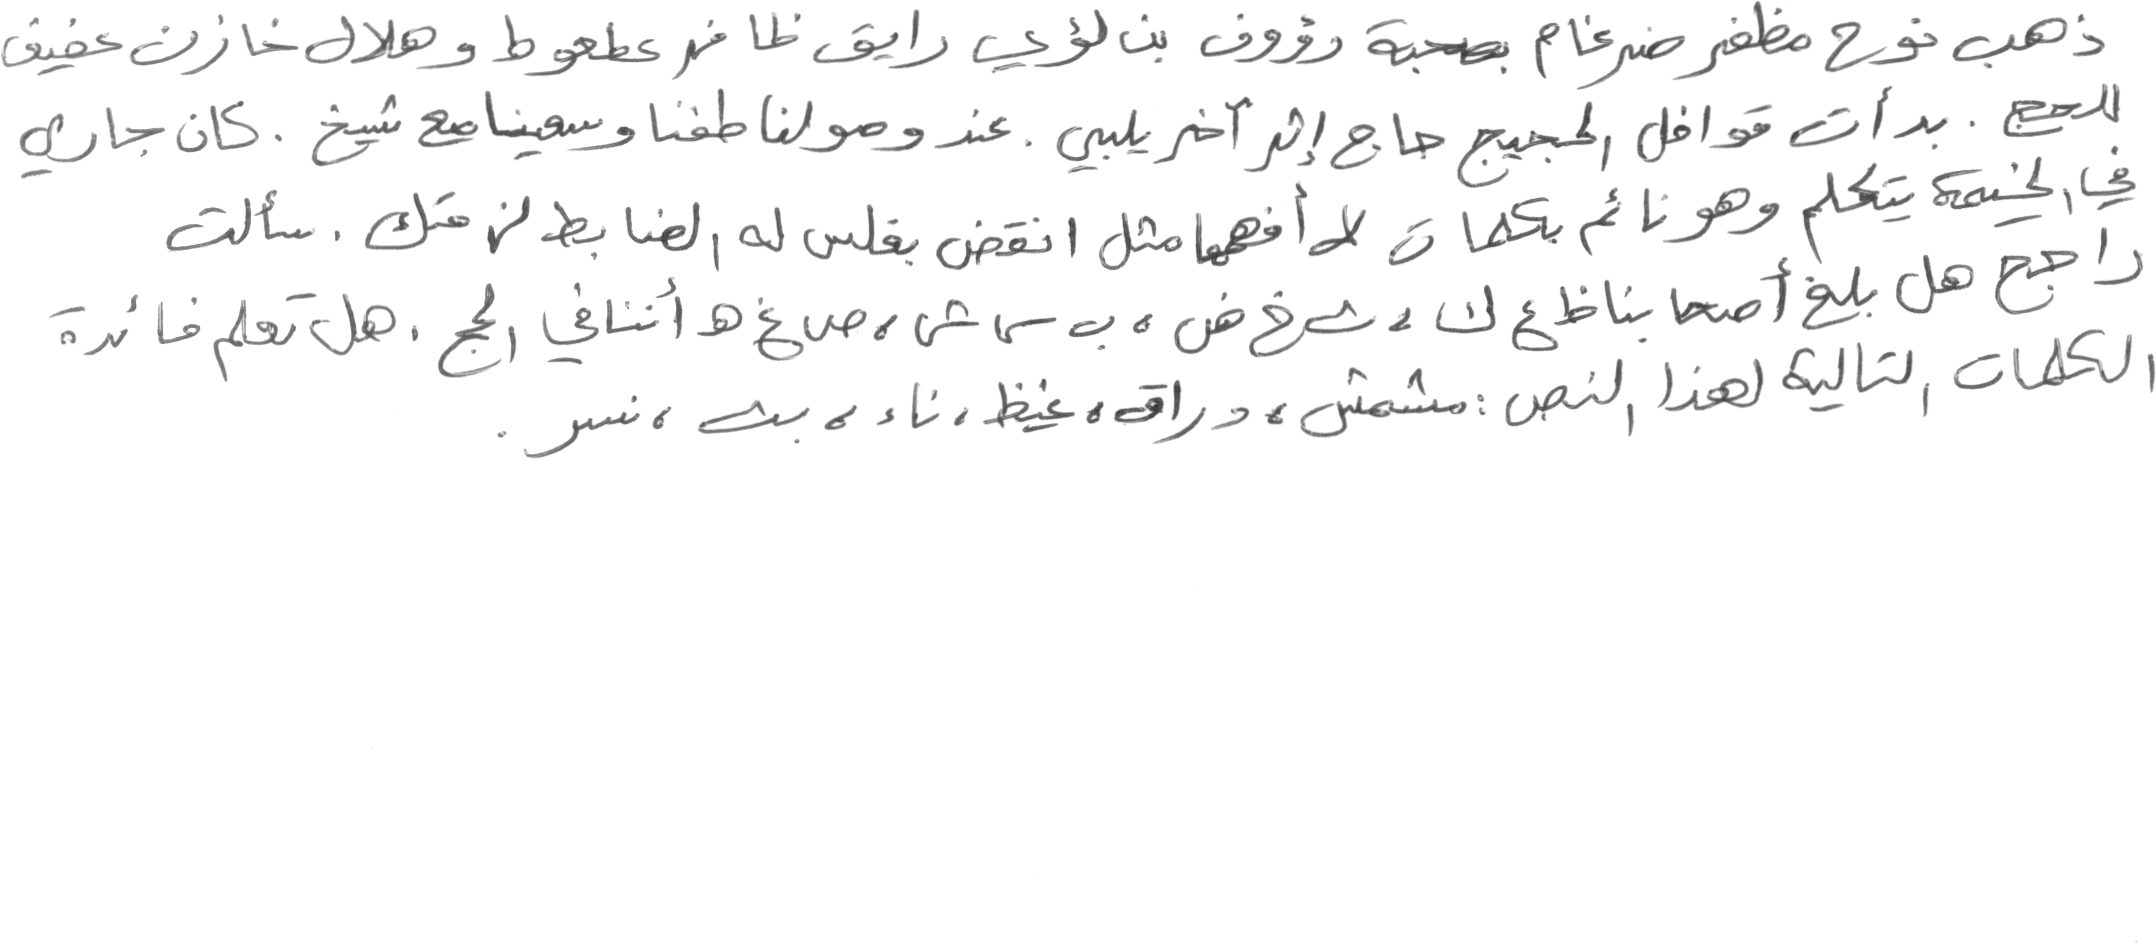 ذهب نوح مظفر ضرغام بصحبة رؤوف بن لؤي رايق ظافر عطعوط وهلال خازن عفيف
للحج . بدأت قوافل الحجيج حاج إثر آخر يلبي . عند وصولنا طفنا وسعينا مع شيخ . كان جاري
في الخيمة يتكلم وهو نائم بكلمات لا أفهمها مثل انقض بغلس له الضابط لزمتك . سألت
راجح هل بلغ أصحابنا ظ ع ك ، ث خ ض ، ب س ش ، ص غ ه أننا في الحج . هل تعلم فائدة
الكلمات التالية لهذا النص : مشمش ، دراق ، غيظ ، ناء ، بث ، نسر .